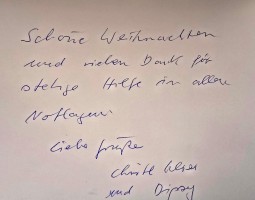 Schöne Weihnachten
und vielen Dank für
stetige Hilfe in allen
Notlagen
Liebe Grüße
und